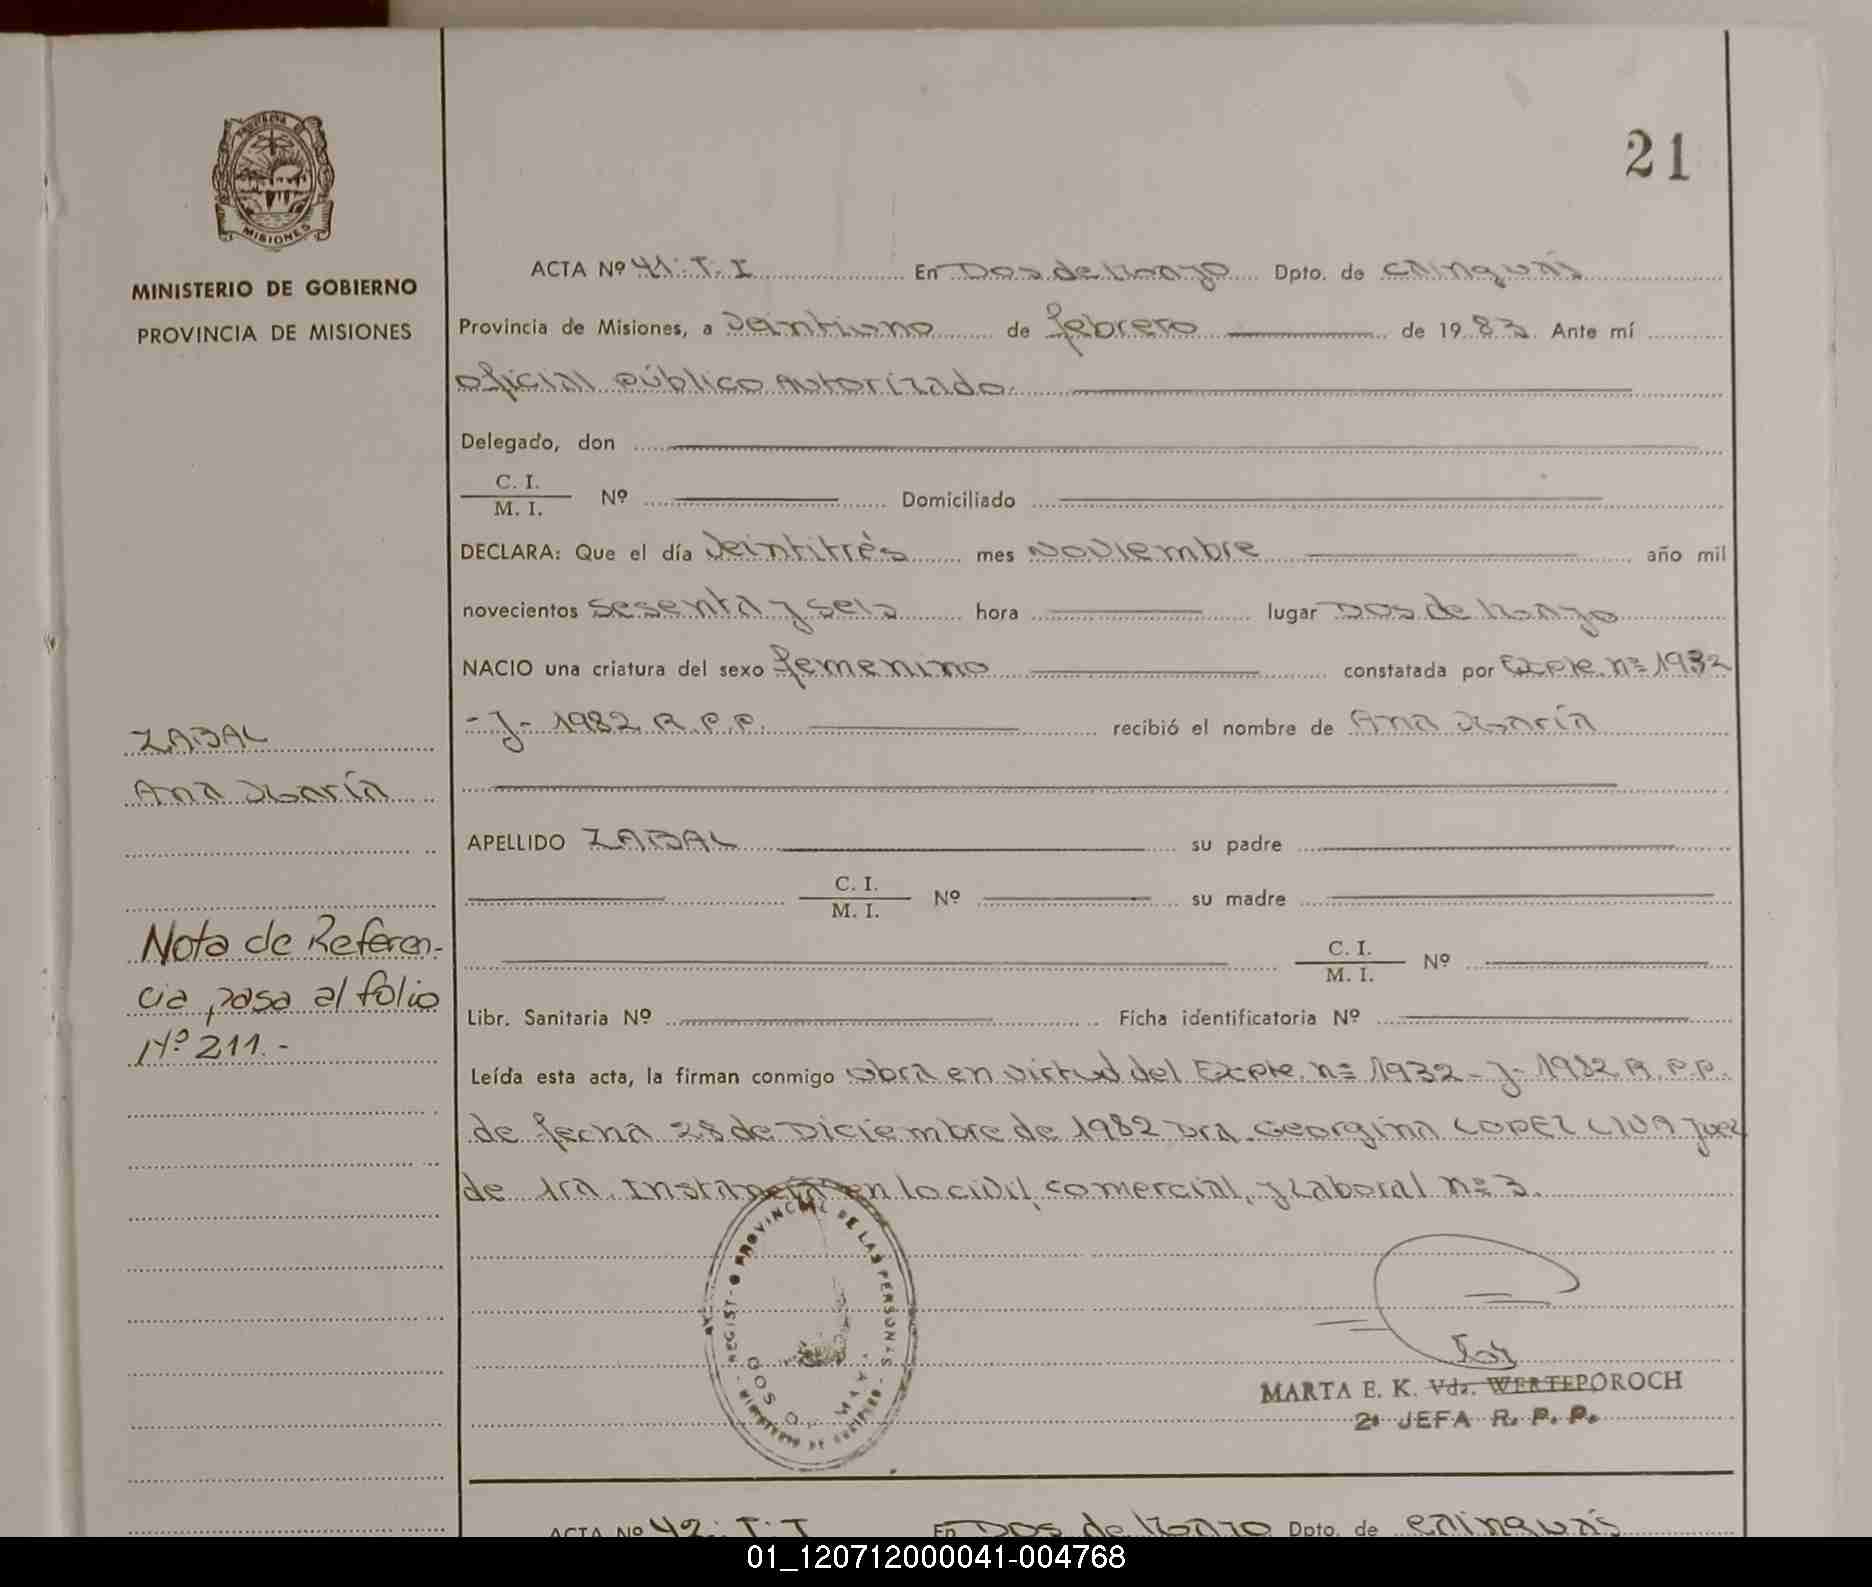 21
PROVINCIA DE
MISIONES
MINISTERIO DE GOBIERNO
PROVINCIA DE MISIONES
ACTA Nº 41: T. I En Dos de Mayo Dpto. de Cainguás
Provincia de Misiones, a Veintiuno de febrero de 1983. Ante mí
oficial público Autorizado.
Delegado, don
C. I.
M. I. Nº Domiciliado
DECLARA: Que el día Veintitrés mes Noviembre año mil
novecientos sesenta y seis hora lugar Dos de Mayo
NACIO una criatura del sexo femenino constatada por Expte. nº 1932
-J- 1982 R.P.P. recibió el nombre de Ana María
APELLIDO ZABAL su padre
C. I.
M. I. Nº su madre
C. I.
M. I. Nº
Libr. Sanitaria Nº Ficha identificatoria Nº
Leída esta acta, la firman conmigo obra en virtud del Expte. nº 1932-J-1982 R.P.P.
de fecha 28 de Diciembre de 1982 Dra. Georgina LOPEZ LIVA Juez
de 1ra. Instancia en lo civil, comercial, y Laboral nº 3.
ZABAL
Ana María
Nota de Referen-
cia, pasa al folio
Nº 211.-
PROVINCIAL DE LAS PERSONAS
DOS DE MAYO
MARTA E. K. Vda. WERTEPOROCH
2ª JEFA R. P. P.
ACTA Nº 42: T. I En Dos de Mayo Dpto. de Cainguás
01_120712000041-004768